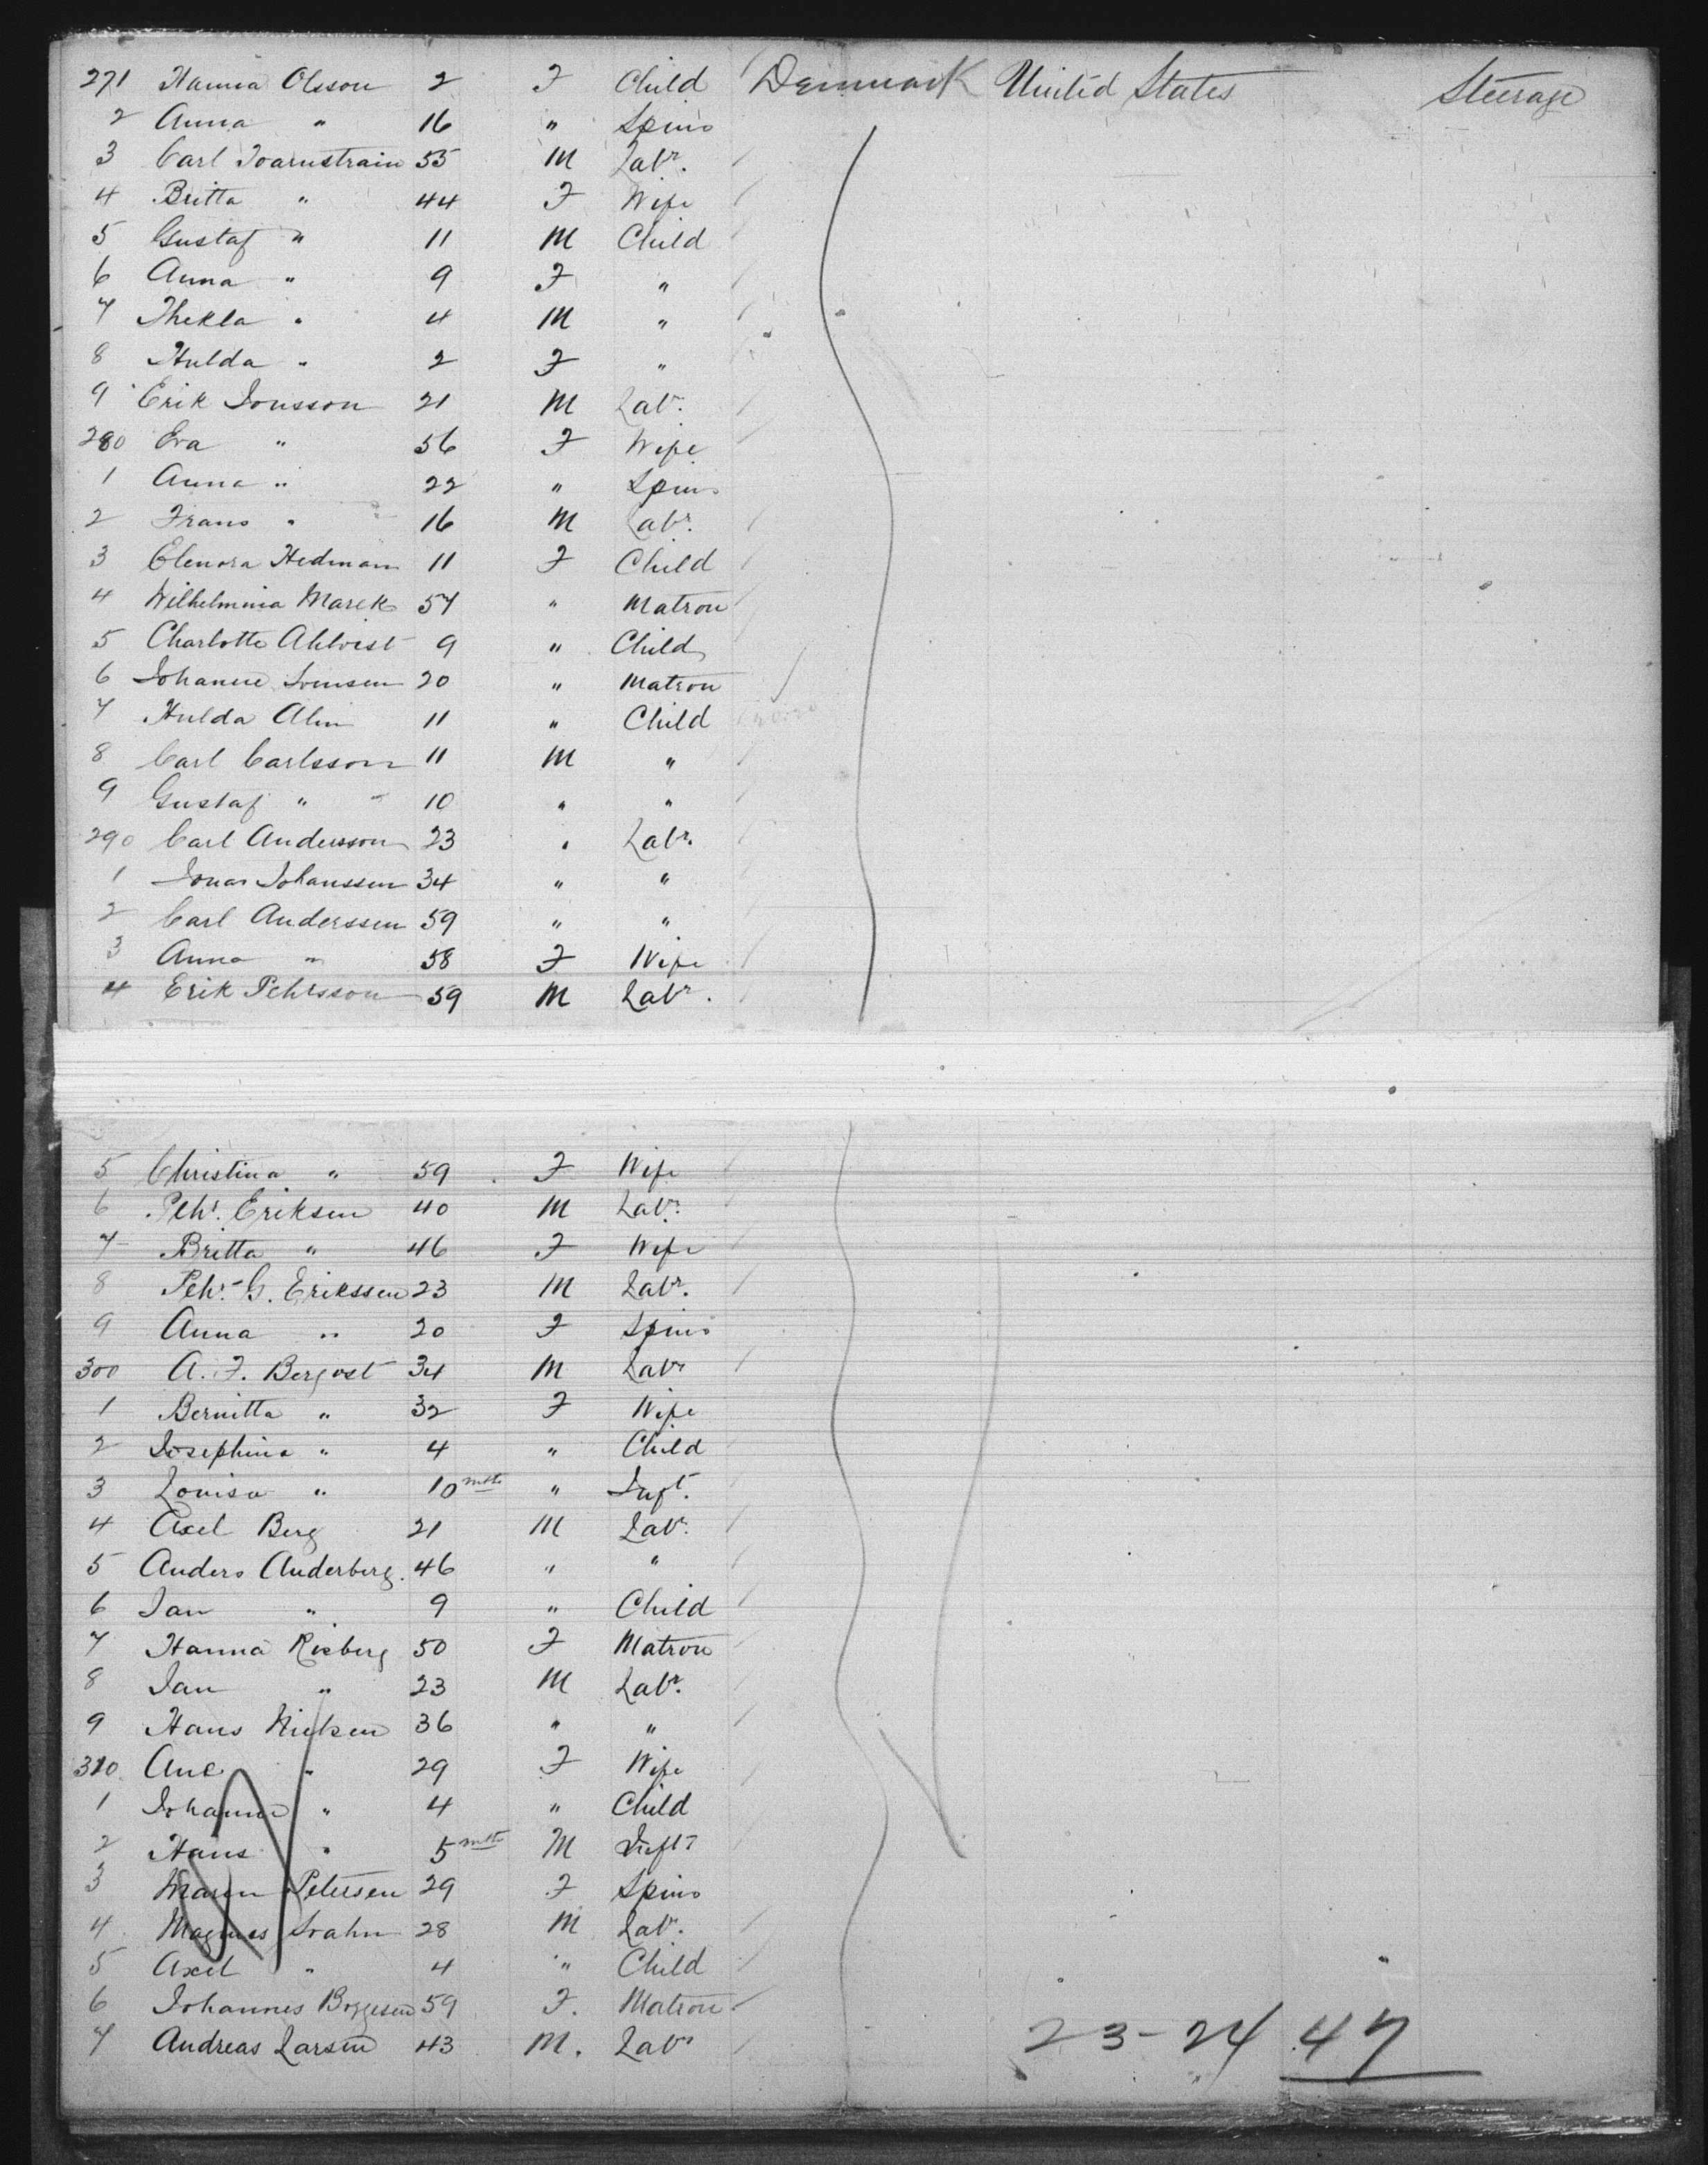 271 Hanna Olsson 2 F Child Denmark United States Steerage
2 Anna " 16 " Spins
3 Carl Toarnstrain 55 M Labr.
4 Britta " 44 F Wife
5 Gustaf " 11 M Child
6 Anna " 9 F "
7 Thekla " 4 M "
8 Hulda " 2 F "
9 Erik Jonsson 21 M Labr.
280 Eva " 56 F Wife
1 Anna " 22 " Spins
2 Frans " 16 M Labr.
3 Elenora Hedman 11 F Child
4 Wilhelmina Marck 57 " Matron
5 Charlotte Ahlvist 9 " Child
6 Johanne Svensen 20 " Matron
7 Hulda Alm 11 " Child
8 Carl Carlsson 11 M "
9 Gustaf " 10 " "
290 Carl Andersson 23 " Labr.
1 Jonas Johanssen 34 " "
2 Carl Anderssen 59 " "
3 Anna " 58 F Wife
4 Erik Pehrsson 59 M Labr.
5 Christina " 59 F Wife
6 Pehr. Eriksen 40 M Labr.
7 Britta " 46 F Wife
8 Pehr. G. Erikssen 23 M Labr.
9 Anna " 20 F Spins
300 A. F. Bergvst 34 M Labr
1 Bernitta " 32 F Wife
2 Josephina " 4 " Child
3 Lovisa " 10 mths " Inft.
4 Axel Berg 21 M Labr.
5 Anders Anderberg. 46 " "
6 Jan " 9 " Child
7 Hanna Risberg 50 F Matron
8 Jan " 23 M Labr.
9 Hans Nielsen 36 " "
310 Ane " 29 F Wife
1 Johanne " 4 " Child
2 Hans " 5 mths M Inft
3 Maren Petersen 29 F Spins
4 Magnus Svahn 28 M Labr.
5 Axel " 4 " Child
6 Johannes Boggesen 59 F. Matron
7 Andreas Larsen 43 M. Labr
23-24 47